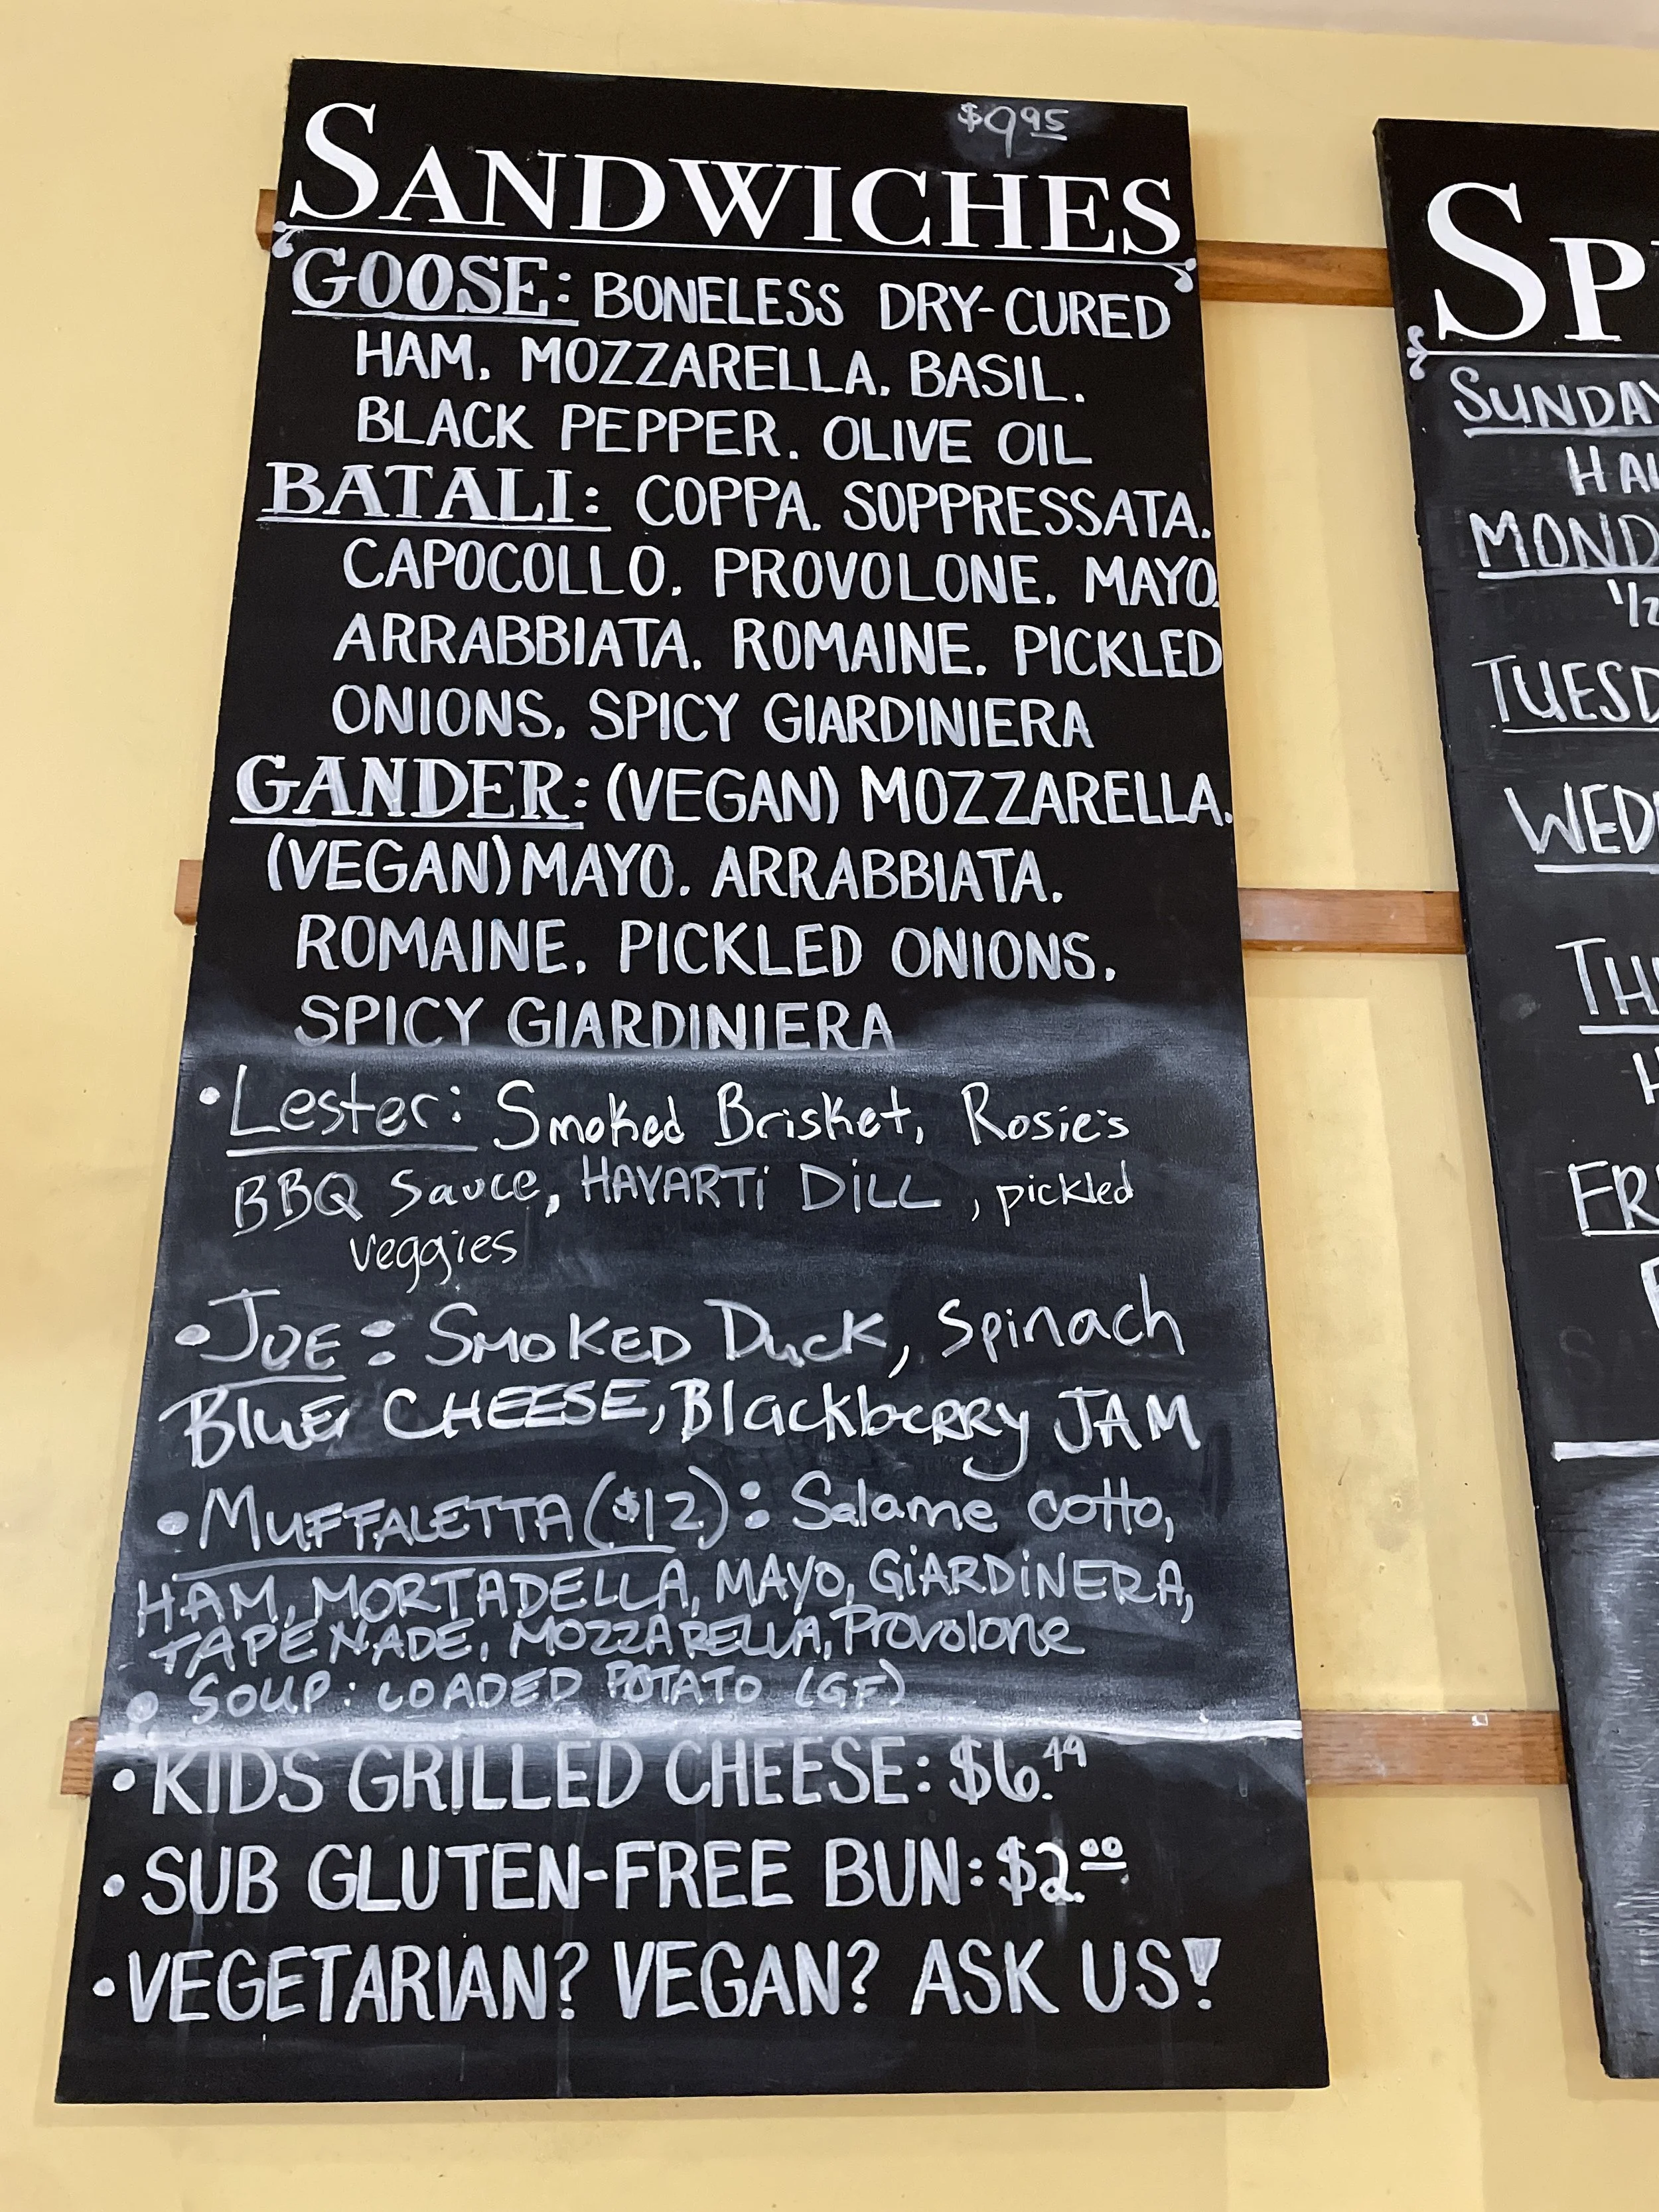 $9.95
SANDWICHES
GOOSE: BONELESS DRY-CURED
HAM, MOZZARELLA, BASIL,
BLACK PEPPER, OLIVE OIL
BATALI: COPPA, SOPPRESSATA,
CAPOCOLLO, PROVOLONE, MAYO,
ARRABBIATA, ROMAINE, PICKLED
ONIONS, SPICY GIARDINIERA
GANDER: (VEGAN) MOZZARELLA,
(VEGAN) MAYO, ARRABBIATA,
ROMAINE, PICKLED ONIONS,
SPICY GIARDINIERA
•Lester: Smoked Brisket, Rosie's
BBQ Sauce, HAVARTi DiLL, pickled
veggies
•JOE: SMOKED Duck, Spinach
BluE CHEESE, BlackbeRRy JAM
•MUFFALETTA ($12): Salame cotto,
HAM, MORTADELLA, MAYO, GiARDiNERA,
TAPENADE, MOZZARELLA, Provolone
• SOUP: LOADED POTATO (GF)
•KIDS GRILLED CHEESE: $6.49
•SUB GLUTEN-FREE BUN: $2.00
•VEGETARIAN? VEGAN? ASK US!
SP
SUNDAY
HA
MOND
1/2
TUESD
WED
TH
H
FR